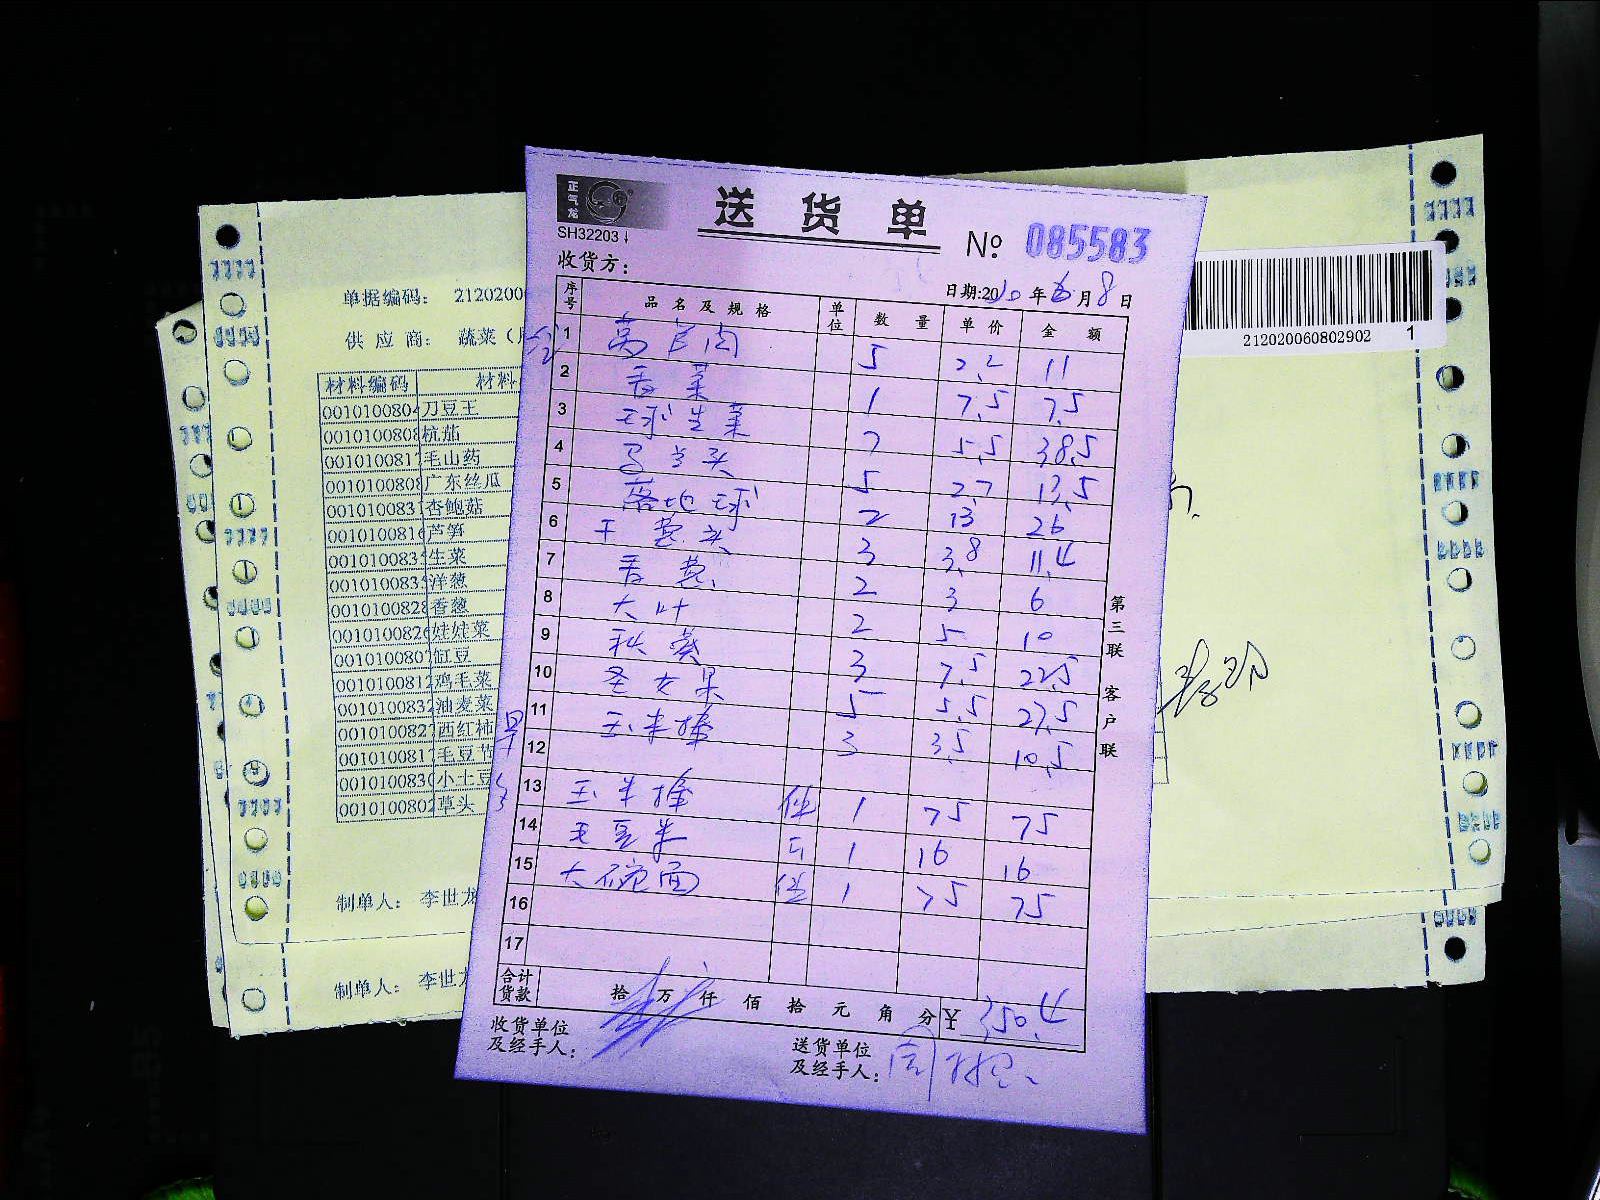 正气龙
SH32203
送货单
№ 085583
收货方：
日期:2020年6月8日
序号 品名及规格 单位 数量 单价 金额
1 莴苣肉 5 2.2 11
2 香菜 1 7.5 7.5
3 球生菜 7 5.5 38.5
4 5 2.7 13.5
5 落地球 2 13 26
6 干葱头 3 3.8 11.4
7 香葱 2 3 6
8 大叶 2 5 10
9 秋葵 3 7.5 22.5
10 圣女果 5 5.5 27.5
11 玉米棒 3 3.5 10.5
12
13 玉米棒 件 1 75 75
14 毛豆米 1 16 16
15 大碗面 件 1 75 75
16
17
合计货款 拾万仟佰拾元角分 ¥ 350.4
收货单位及经手人：
送货单位及经手人：
第三联 客户联
单据编码： 2120200
供应商： 蔬菜（
材料编码 材料
001010080 刀豆王
001010080 杭茄
001010081 毛山药
001010080 广东丝瓜
001010083 杏鲍菇
001010081 芦笋
001010083 生菜
001010083 洋葱
001010082 香葱
001010082 娃娃菜
001010080 缸豆
001010081 鸡毛菜
001010083 油麦菜
001010082 西红柿
001010081 毛豆节
001010083 小土豆
001010080 草头
制单人： 李世龙
制单人： 李世龙
212020060802902 1